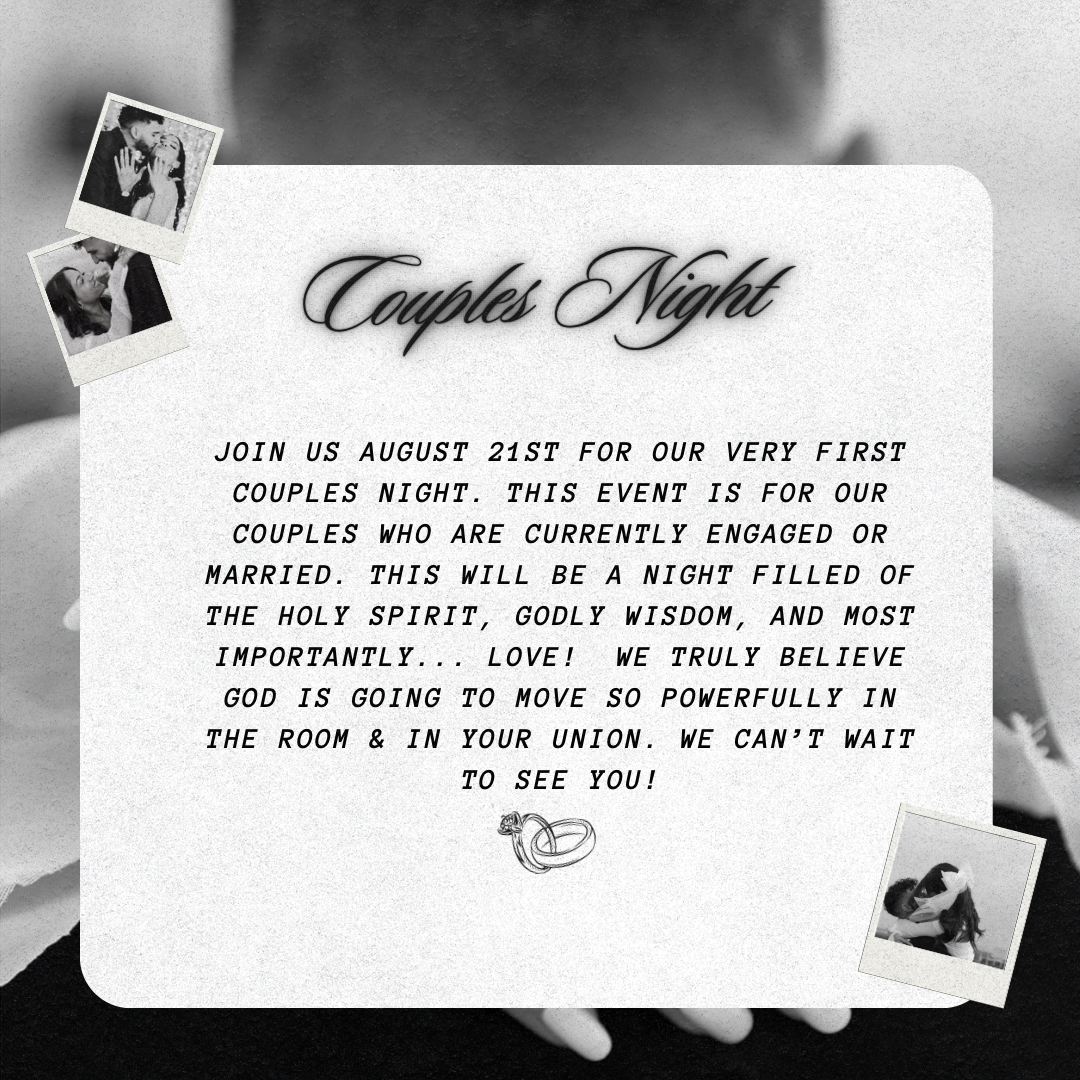 Couples Night
JOIN US AUGUST 21ST FOR OUR VERY FIRST
COUPLES NIGHT. THIS EVENT IS FOR OUR
COUPLES WHO ARE CURRENTLY ENGAGED OR
MARRIED. THIS WILL BE A NIGHT FILLED OF
THE HOLY SPIRIT, GODLY WISDOM, AND MOST
IMPORTANTLY... LOVE!  WE TRULY BELIEVE
GOD IS GOING TO MOVE SO POWERFULLY IN
THE ROOM & IN YOUR UNION. WE CAN’T WAIT
TO SEE YOU!